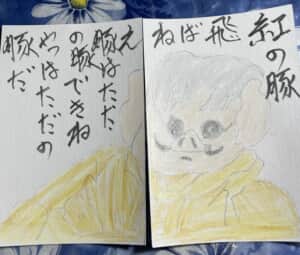 紅の豚
飛ばね
え
豚はたた
の豚できね
やっはただの
豚だ